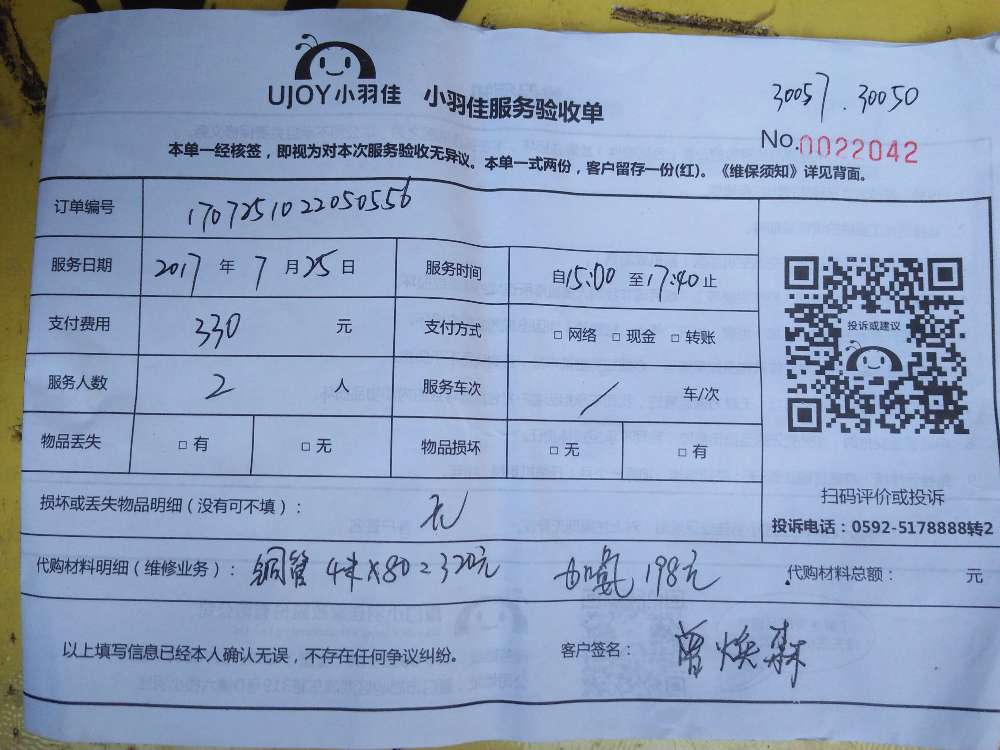 UJOY小羽佳 小羽佳服务验收单
30057.30050
No.0022042
本单一经核签，即视为对本次服务验收无异议。本单一式两份，客户留存一份(红)。《维保须知》详见背面。
订单编号 1707251022050556
服务日期 2017 年 7 月 25 日 服务时间 自15:00 至17:40止
支付费用 330 元 支付方式 □ 网络 □ 现金 □ 转账
投诉或建议
服务人数 2 人 服务车次 / 车/次
物品丢失 □ 有 □ 无 物品损坏 □ 无 □ 有
扫码评价或投诉
投诉电话：0592-5178888转2
损坏或丢失物品明细（没有可不填）： 无
代购材料明细（维修业务）： 铜管 4米×80=320元 加氟 198元 代购材料总额： 元
以上填写信息已经本人确认无误，不存在任何争议纠纷。 客户签名： 曾焕森